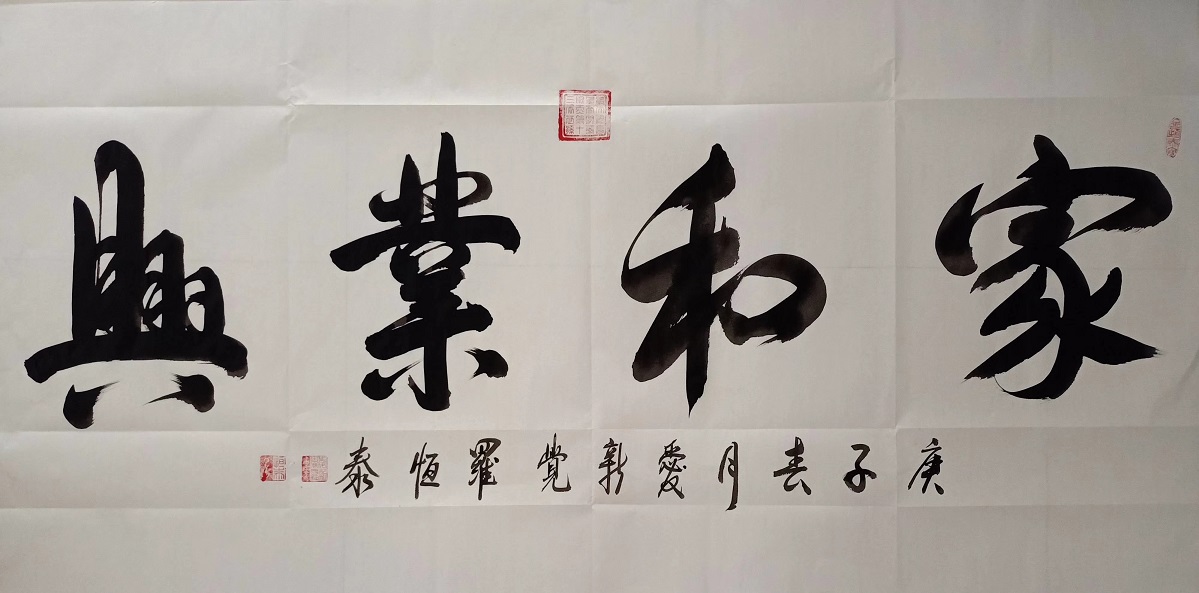 家和業興
庚子春月愛新覺羅恒泰